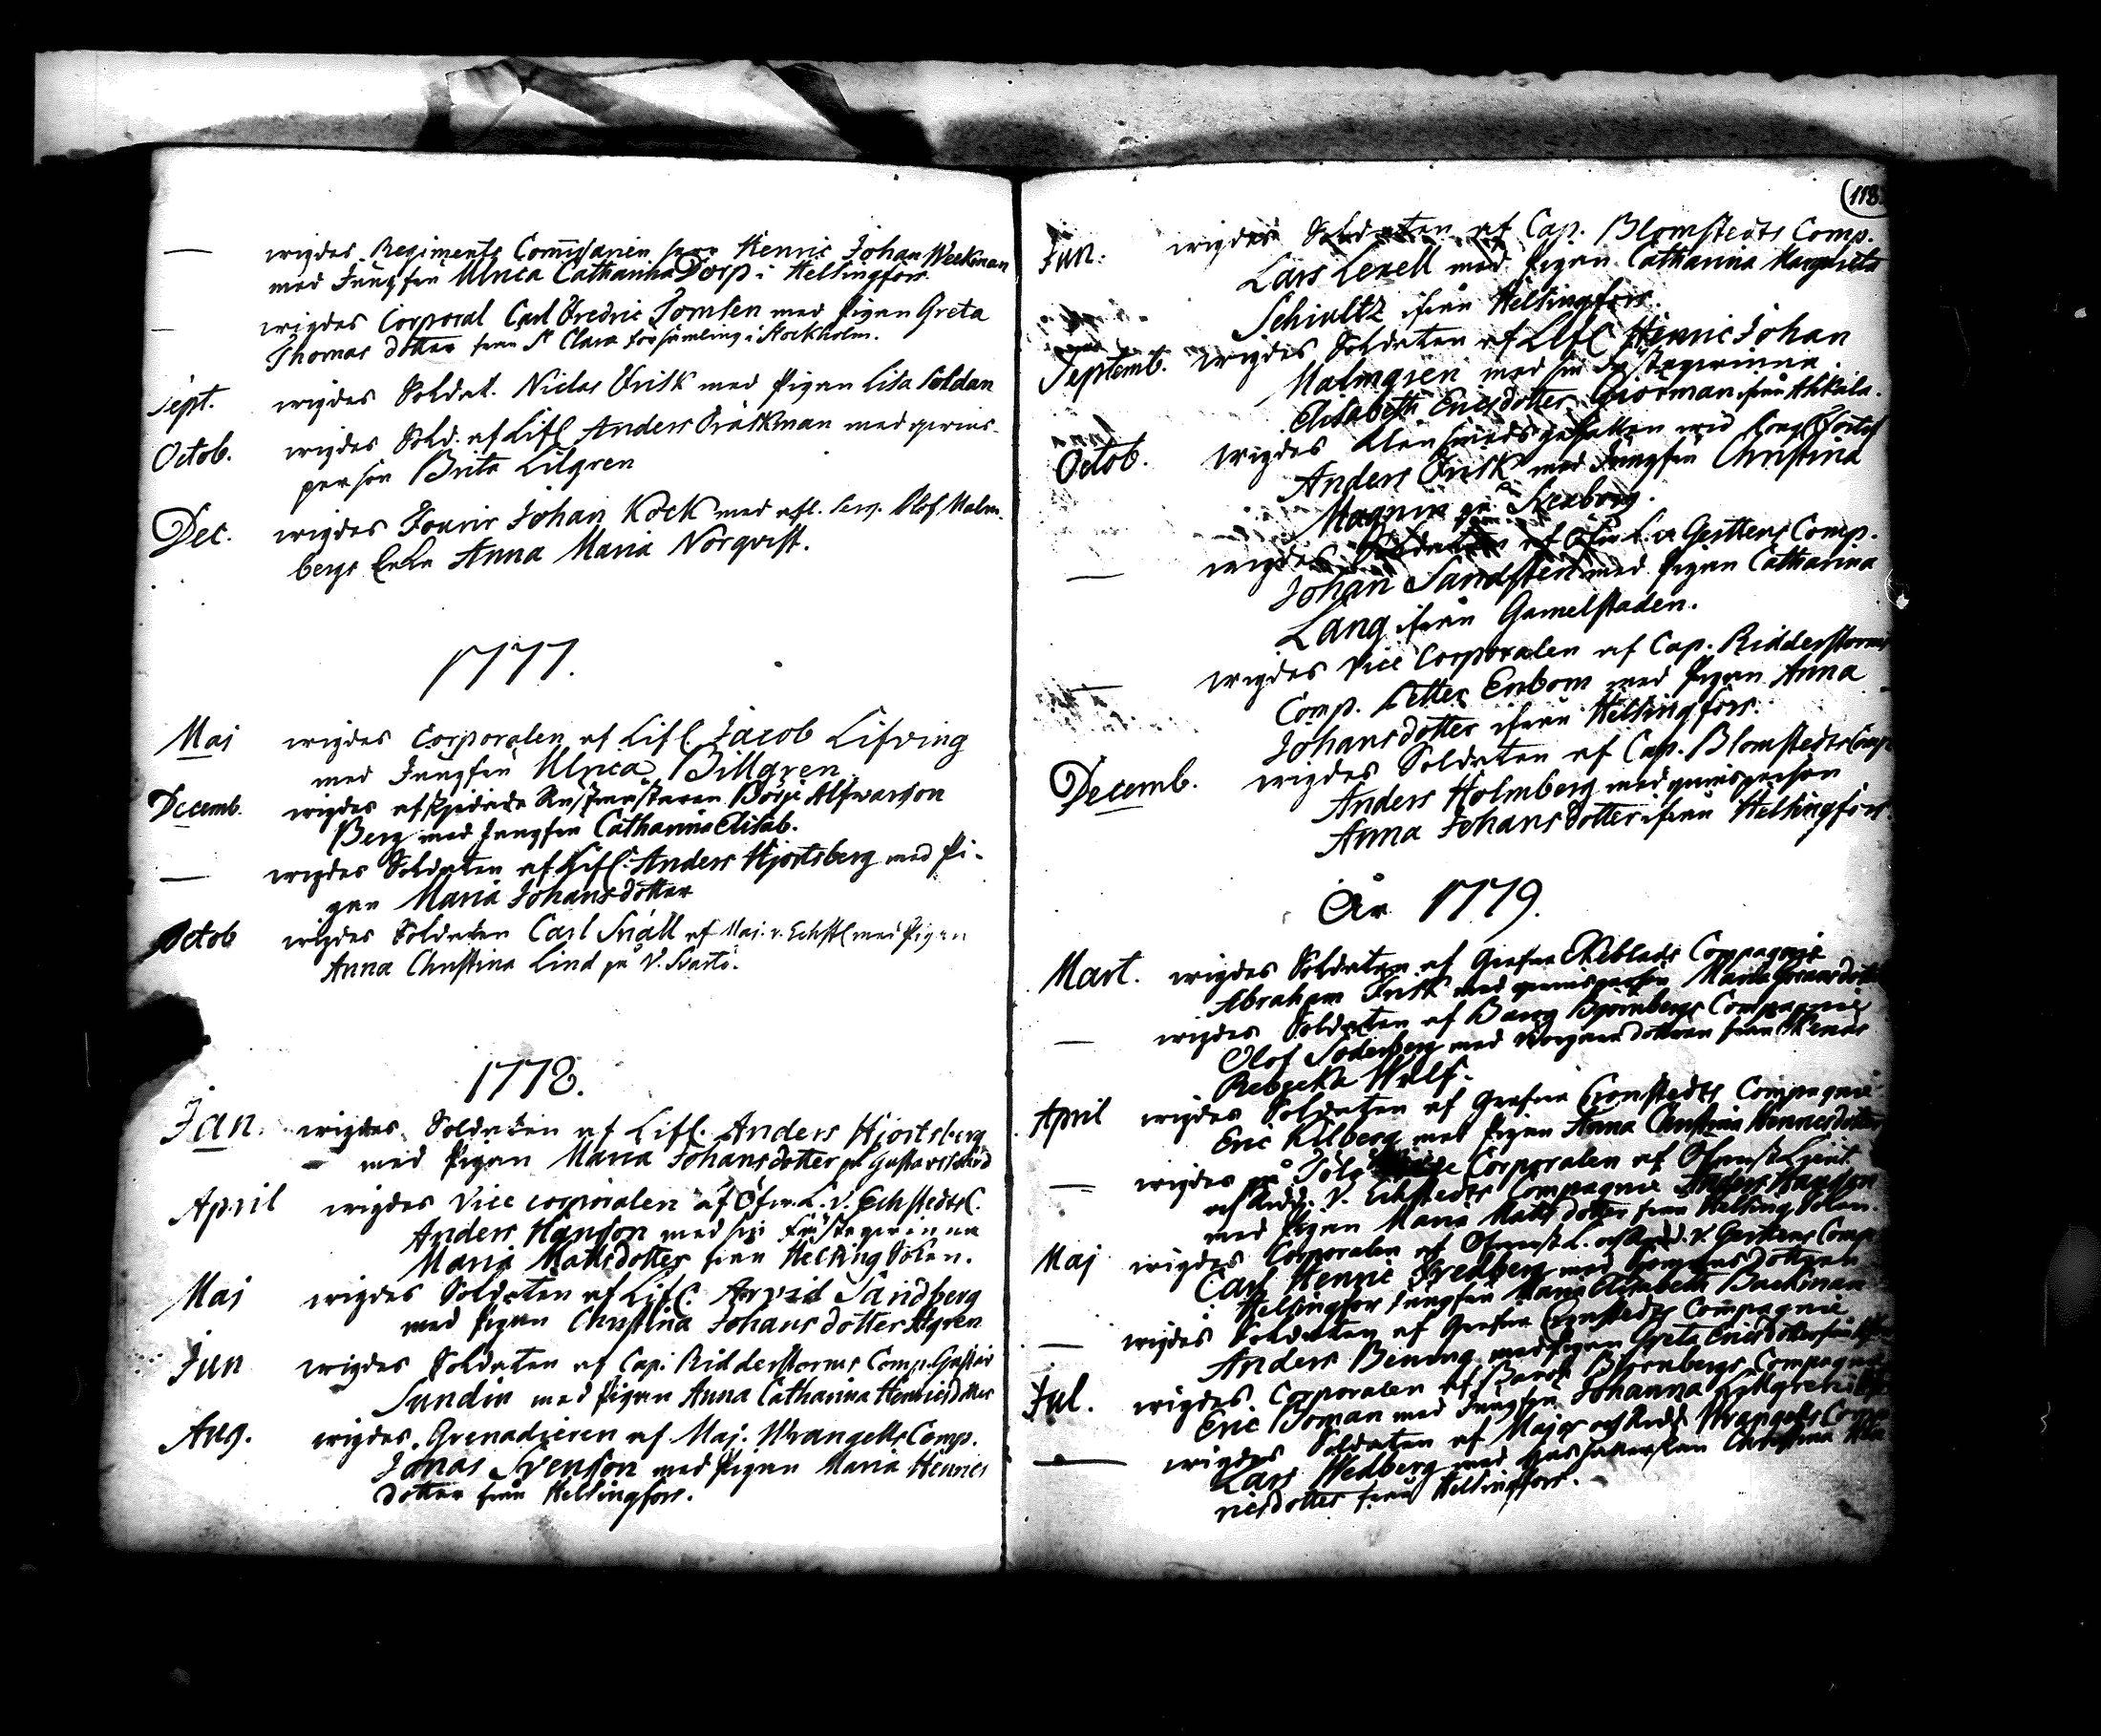 — wigdes Regiments Commissarien herr Henric Johan Weekman
med Jungfru Ulrica Catharina Dorp i Helsingfors.
— wigdes Corporal Carl Fredric Tomsen med Pigan Greta
Thomas dotter från St Clara församling i Stockholm.
Sept. wigdes Soldat. Niclas Frisk med Pigan Lisa Soldan
Octob. wigdes Sold. af Lifc. Anders Bråkman med qwins-
person Brita Lilgren
Dec. wigdes Fourir Johan Kock med afl. Serg. Olof Malm-
bergs Enka Anna Maria Norqvist.
1777.
Maj wigdes Corporalen af Lifc. Jacob Lifving
med Jungfru Ulrica Billgren
Decemb. wigdes afskjedade Rustmästaren Börje Alfwarson
Berg med Jungfru Catharina Elisab.
— wigdes Soldaten af Lifc. Anders Hjortsberg med Pi-
gan Maria Johansdotter
Octob wigdes Soldaten Carl Snäll af Maj. v. Echst. C. med Pigan
Anna Christina Lind på V. Svartö.
1778.
Jan. wigdes Soldaten af Lifc. Anders Hjortsberg
med Pigan Maria Johansdotter på Gustavssvärd
April wigdes Vice corporalen af Öfw. L. v. Echstedts C.
Anders Hanson med sin Fästeqwinna
Maria Matsdotter från Helsing Soken.
Maj wigdes Soldaten af Lifc. Arvid Sandberg
med Pigan Christina Johans dotter Algren
Jun wigdes Soldaten af Cap. Ridderstorms Comp. Gustav
Sundin med Pigan Anna Catharina Henricsdotter
Aug. wigdes Grenadieren af Maj. Wrangells Comp.
Jonas Svenson med Pigan Maria Henrics
dotter från Helsingfors.
118.
Jun. wigdes Soldaten af Cap. Blomstedts Comp.
Lars Lexell med Pigan Catharina Margareta
Schiultz ifrån Helsingfors.
Septemb. wigdes Soldaten af Lifc. Henric Johan
Malmgren med sin Fästeqwinna
Elisabeth Ericsdotter Giörman ifrån
Octob. wigdes Klensmeds gesällen wid Kongl. Fortif.
Anders Frisk med Jungfru Christina
Magnin på
— wigdes Soldaten af Öfw. L. v. Gerttens Comp.
Johan Sandsten med Pigan Catharina
Lang ifrån Gamelstaden.
— wigdes Vice Corporalen af Cap. Ridderstorms
Comp. Petter Enbom med Pigan Anna
Johansdotter ifrån Helsingfors.
Decemb. wigdes Soldaten af Cap. Blomstedts Comp.
Anders Holmberg med qwinsperson
Anna Johansdotter ifrån Helsingfors.
År 1779.
Mart. wigdes Soldaten af Grefwe Ekeblads Compagnie
Abraham Frisk med qwinsperson Maria
— wigdes Soldaten af Baron Björnbergs Compagnie
Olof Söderberg med dottren från
Rebecka Wulf.
April wigdes Soldaten af Grefwe Cronstedts Compagnie
Eric Kilberg med Pigan Anna Christina Henricsdotter
— wigdes på Corporalen af Öfwerst. Lieut.
och Ridd. v. Echstedts Compagnie Anders Hanson
med Pigan Maria Mats dotter från Helsing Soken.
Maj wigdes Corporalen af Öfwerst. L. och Ridd. v. Gerttens Comp.
Carl Henric Fredberg med dottren
i Helsingfors Jungfru Maria Elisabeth Backman
— wigdes Soldaten af Grefwe Cronstedts Compagnie
Anders Bening med Pigan Greta Ericsdotter från
Jul. wigdes Corporalen af Baron Björnbergs Compagnie
Eric Boman med Jungfru Johanna
— wigdes Soldaten af Major och Ridd. Wrangells Comp.
Lars Wedberg med Hushållerskan Christina Hen-
ricsdotter från Helsingfors.